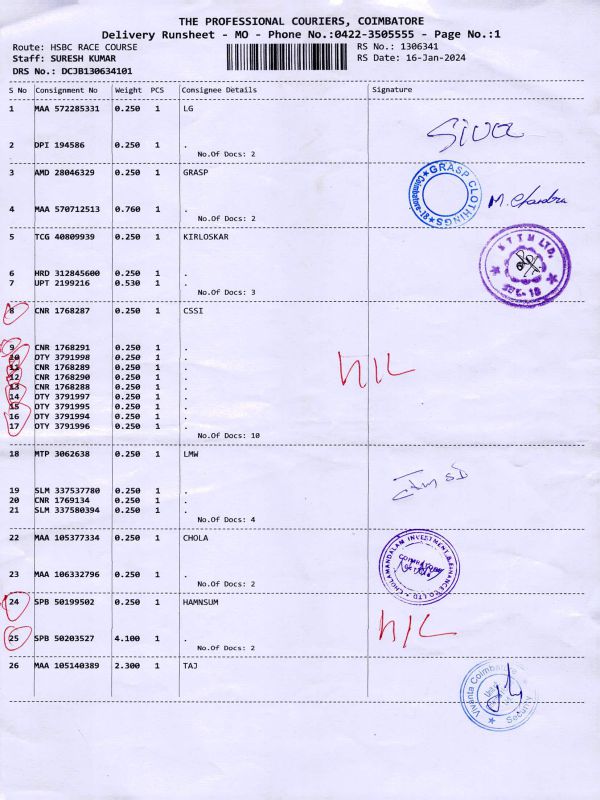 THE PROFESSIONAL COURIERS, COIMBATORE
Delivery Runsheet - MO - Phone No.:0422-3505555 - Page No.:1
Route: HSBC RACE COURSE
RS No.: 1306341
Staff: SURESH KUMAR
RS Date: 16-Jan-2024
DRS No.: DCJB130634101
S No Consignment No Weight PCS Consignee Details Signature
1 MAA 572285331 0.250 1 LG
Siva
2 DPI 194586 0.250 1 .
No.Of Docs: 2
3 AMD 28046329 0.250 1 GRASP
GRASP CLOTHINGS
Coimbatore-18
4 MAA 570712513 0.760 1 .
No.Of Docs: 2
5 TCG 40809939 0.250 1 KIRLOSKAR
6 HRD 312845600 0.250 1 .
7 UPT 2199216 0.530 1 .
No.Of Docs: 3
8 CNR 1768287 0.250 1 CSSI
9 CNR 1768291 0.250 1 .
10 DTY 3791998 0.250 1 .
11 CNR 1768289 0.250 1 .
12 CNR 1768290 0.250 1 .
13 CNR 1768288 0.250 1 .
14 DTY 3791997 0.250 1 .
15 DTY 3791995 0.250 1 .
16 DTY 3791994 0.250 1 .
17 DTY 3791996 0.250 1 .
N/L
No.Of Docs: 10
18 MTP 3062638 0.250 1 LMW
19 SLM 337537780 0.250 1 .
20 CNR 1769134 0.250 1 .
21 SLM 337580394 0.250 1 .
No.Of Docs: 4
22 MAA 105377334 0.250 1 CHOLA
CHOLAMANDALAM INVESTMENT & FINANCE CO LTD
23 MAA 106332796 0.250 1 .
No.Of Docs: 2
24 SPB 50199502 0.250 1 HAMNSUM
N/L
25 SPB 50203527 4.100 1 .
No.Of Docs: 2
26 MAA 105140389 2.300 1 TAJ
Vivanta Coimbatore
Security